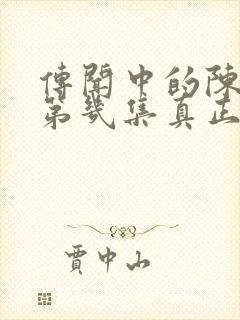 傳聞中的陳
第幾集真正
賈中山